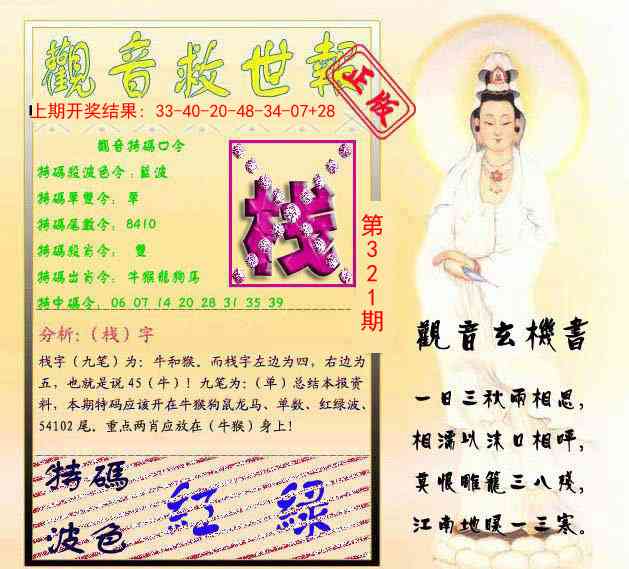 觀音救世報
正版
上期开奖结果：33-40-20-48-34-07+28
觀音特碼口令
特碼段波色令：藍波
特碼單雙令：單
特碼尾數令：8410
特碼段肖令：雙
特碼出肖令：牛猴龍狗馬
特中碼令：06 07 14 20 28 31 35 39
栈
第321期
分析：（栈）字
栈字（九笔）为：牛和猴。而栈字左边为四，右边为
五，也就是说 45（牛）！九笔为：（单）总结本报资
料，本期特码应该开在牛猴狗鼠龙马、单数、红绿波、
54102 尾。重点两肖应放在（牛猴）身上！
特碼
波色
紅 綠
觀音玄機書
一日三秋兩相思，
相濡以沫口相呼，
莫恨雕籠三八殘，
江南地暖一三寒。